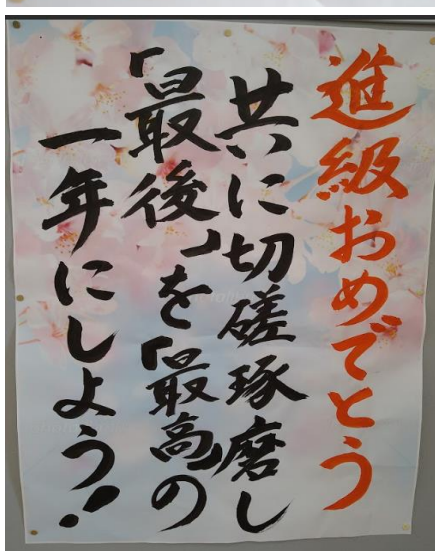 進級おめでとう
共に切磋琢磨し
「最後」を「最高」の
一年にしよう!